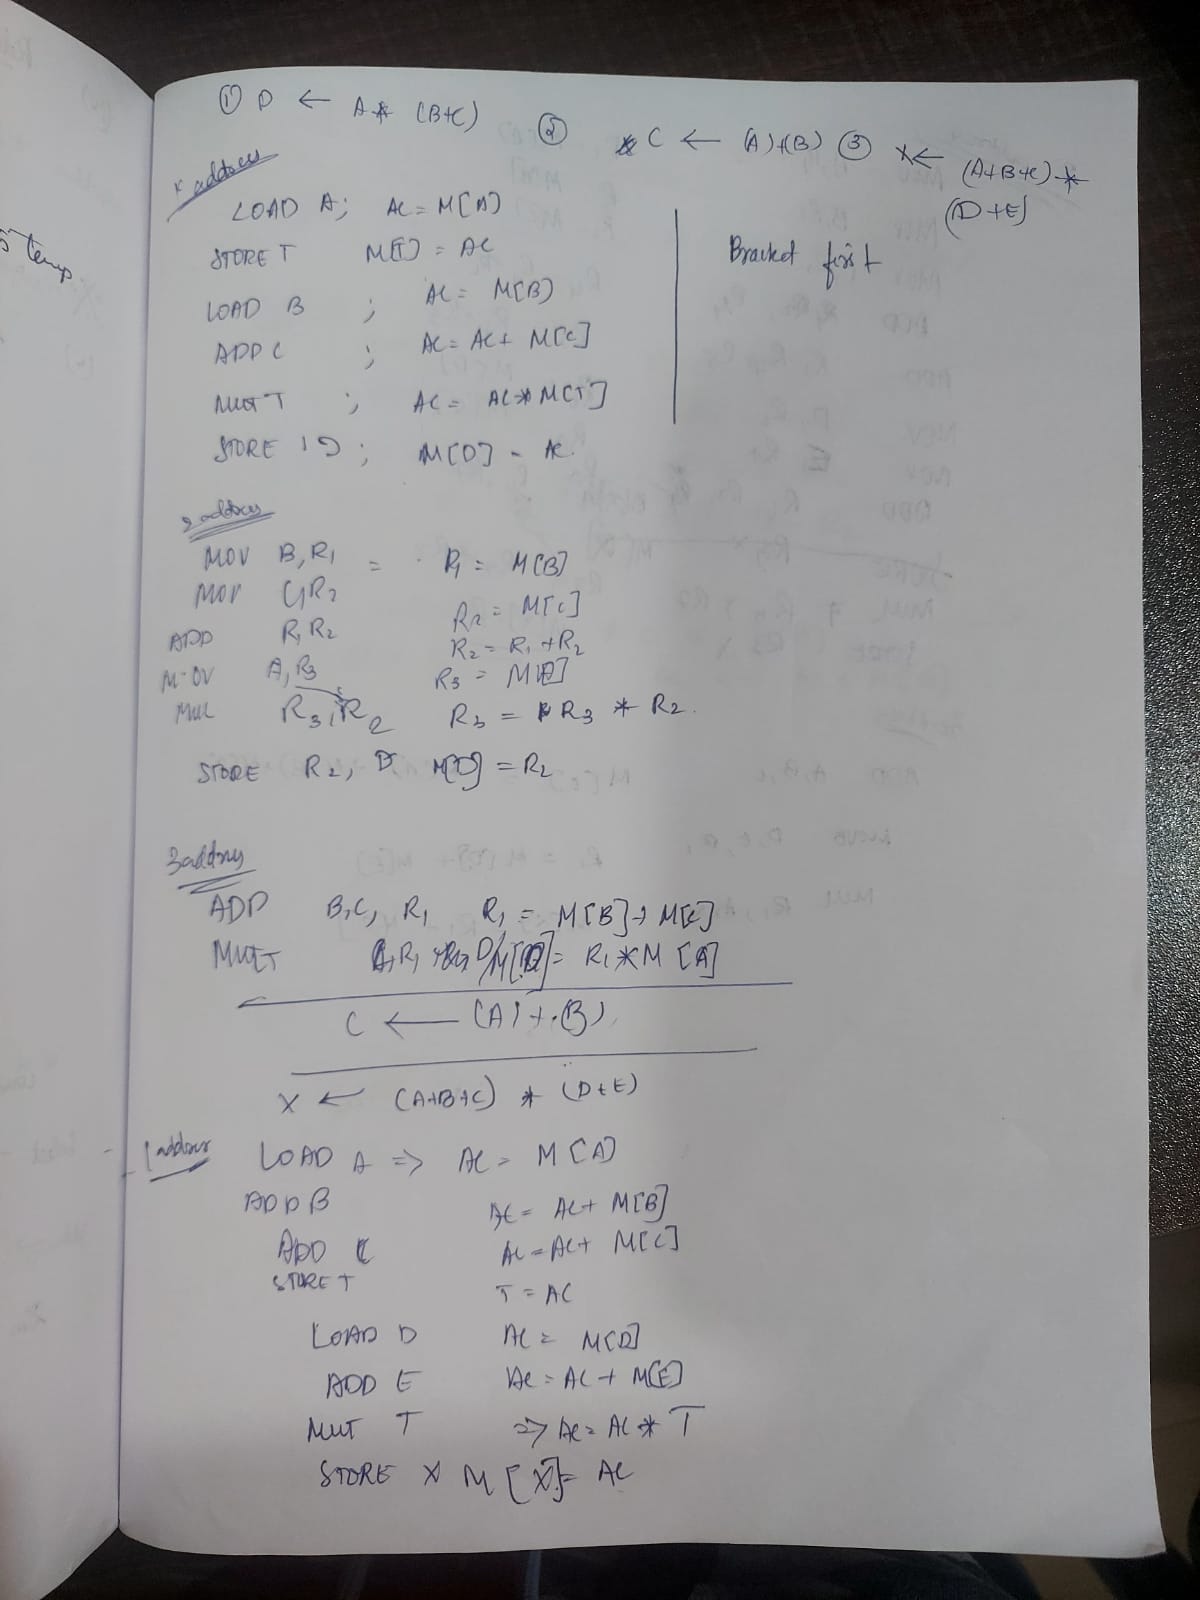 ① D ← A * (B+C)
② C ← (A)+(B)
③ X ← (A+B+C) *
(D+E)
address
LOAD A; AC = M[A]
STORE T M[T] = AC
LOAD B ; AC = M[B]
ADD C ; AC = AC + M[C]
MULT T ; AC = AC * M[T]
STORE D ; M[D] = AC.
Bracket first
temp
2 address
MOV B, R1 = R1 = M[B]
MOV C, R2 R2 = M[C]
ADD R1 R2 R2 = R1 + R2
MOV A, R3 R3 = M[A]
MUL R3, R2 R3 = R3 * R2.
STORE R2, D M[D] = R2
3 address
ADD B, C, R1 R1 = M[B] + M[C]
MULT A, R1 D M[D] = R1 * M[A]
C ← (A) + (B)
X ← (A+B+C) * (D+E)
1 address
LOAD A => AC = M[A]
ADD B AC = AC + M[B]
ADD C AC = AC + M[C]
STORE T T = AC
LOAD D AC = M[D]
ADD E AC = AC + M[E]
MUT T => AC = AC * T
STORE X M[X] = AC